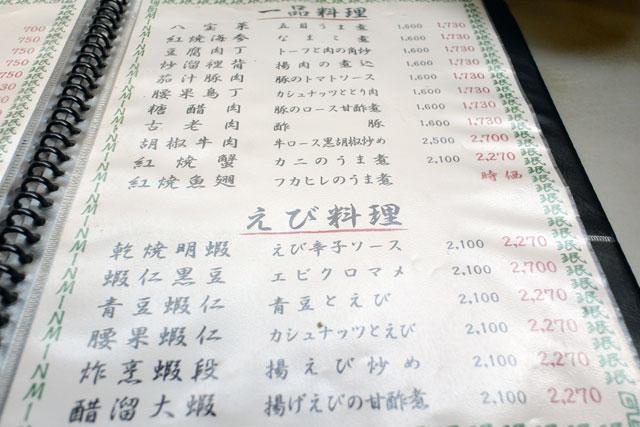 700
750
750
750
一品料理
八宝菜 五目うま煮 1,600 1,730
紅焼海参 なまこ煮 1,600 1,730
豆腐肉丁 トーフと肉の角炒 1,600 1,730
炒溜裡脊 揚肉の煮込 1,600 1,730
茄汁豚肉 豚のトマトソース 1,600 1,730
腰果鳥丁 カシュナッツととり肉 1,600 1,730
糖醋肉 豚のロース甘酢煮 1,600 1,730
古老肉 酢豚 1,600 1,730
胡椒牛肉 牛ロース黒胡椒炒め 2,500 2,700
紅焼蟹 カニのうま煮 2,100 2,270
紅焼魚翅 フカヒレのうま煮 時価
えび料理
乾焼明蝦 えび辛子ソース 2,100 2,270
蝦仁黒豆 エビクロマメ 2,100 2,700
青豆蝦仁 青豆とえび 2,100 2,270
腰果蝦仁 カシュナッツとえび 2,100 2,270
炸烹蝦段 揚えび炒め 2,100 2,270
醋溜大蝦 揚げえびの甘酢煮 2,100 2,270
MINMINMINMINMIN
珉珉珉珉珉珉珉珉珉珉